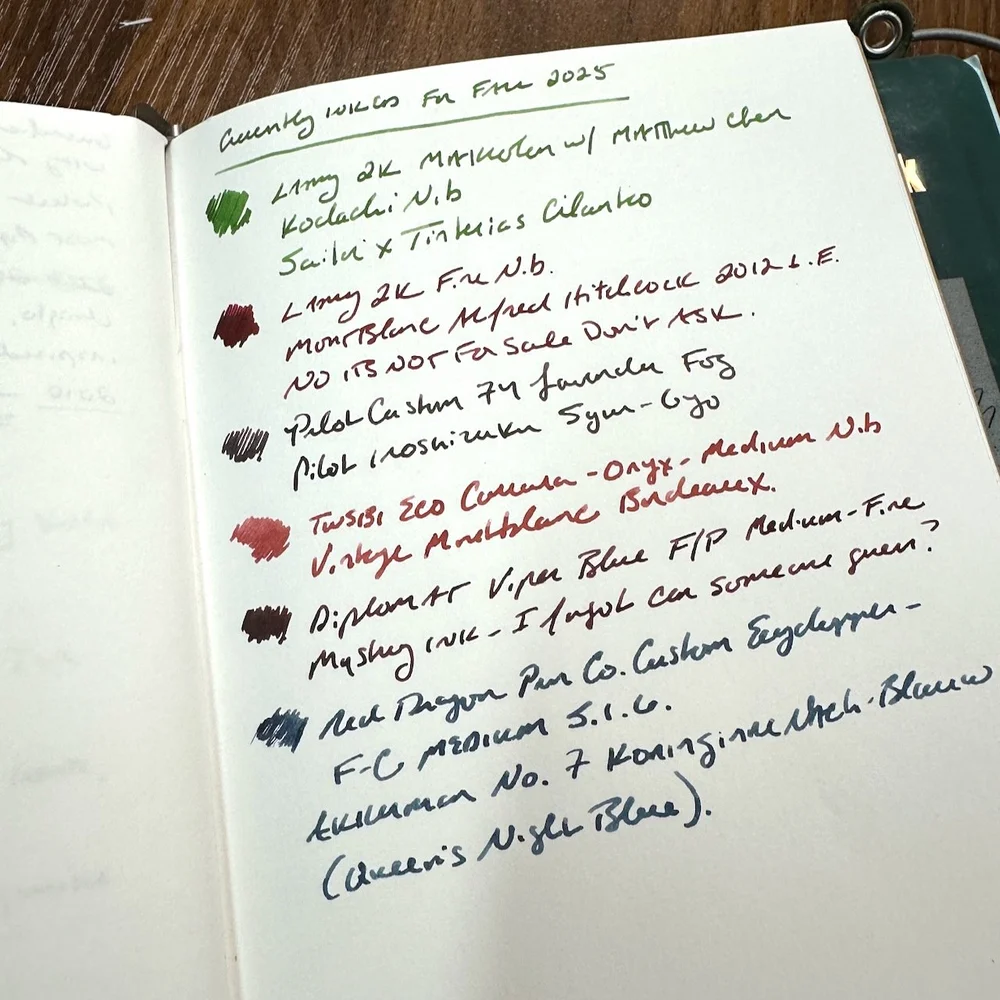 Currently inked for Fall 2025
Lamy 2K Makrolon w/ Matthew Chen
Kodachi Nib
Sailor x Tinterias Cilantro
Lamy 2K Fine Nib.
MontBlanc Alfred Hitchcock 2012 L.E.
No its not for sale Don't Ask.
Pilot Custom 74 lavender Fog
Pilot iroshizuku Syun-Gyo
TWSBI Eco - Onyx - Medium Nib
Vintage Montblanc Bordeaux.
Diplomat Viper Blue F/P Medium-Fine
Mystery ink - I forgot can someone guess?
Red Dragon Pen Co. Custom
F-C MEDIUM S.I.G.
Akkerman No. 7 Koninginne Nach-Blauw
(Queen's Night Blue).
K